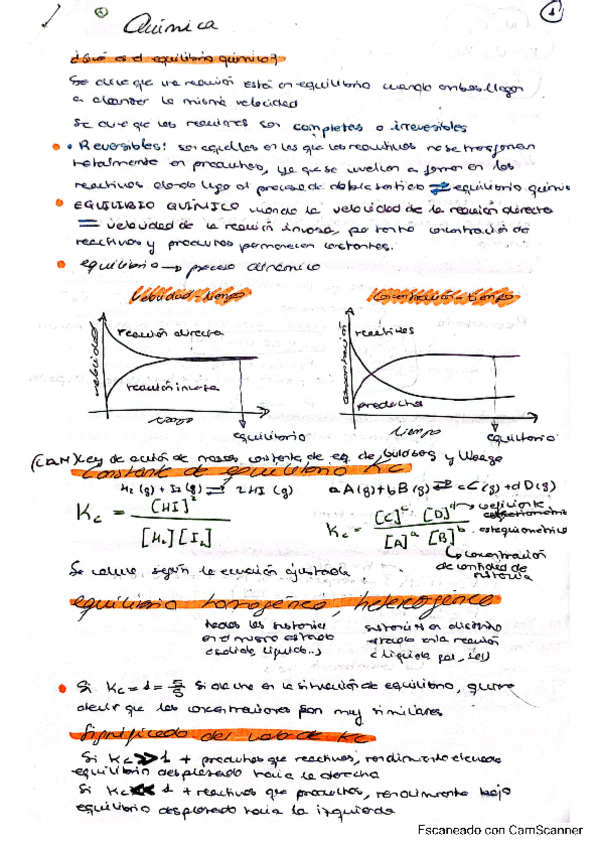 1
Química
¿Qué es el equilibrio químico?
Se dice que una reacción está en equilibrio cuando ambas llegan
a alcanzar la misma velocidad
Se dice que las reacciones son completas o irreversibles
• Reversibles: son aquellas en las que los reactivos no se transforman
totalmente en productos, ya que se vuelven a formar en los
reactivos dando lugar al proceso de doble sentido ⇌ equilibrio químico
• EQUILIBRIO QUÍMICO cuando la velocidad de la reacción directa
= velocidad de la reacción inversa, por tanto concentración de
reactivos y productos permanecen constantes.
• equilibrio → proceso dinámico
Velocidad - tiempo
Concentración - tiempo
velocidad
reacción directa
reacción inversa
tiempo
equilibrio
concentración
reactivos
productos
tiempo
equilibrio
Ley de acción de masas, constante de eq. de Guldberg y Waage
Constante de equilibrio Kc
H₂ (g) + I₂ (g) ⇌ 2HI (g)
a A(g) + b B(g) ⇌ c C(g) + d D(g)
Kc = [HI]² / [H₂][I₂]
Kc = [C]ᶜ [D]ᵈ / [A]ᵃ [B]ᵇ
coeficiente
estequiométrico
concentración
de cantidad de
sustancia
Se calcula según la ecuación ajustada
equilibrio homogéneo, heterogéneo
todas las sustancias
en el mismo estado
(sólido, líquido..)
sustancias en distinto
estado en la reacción
(líquido, gas, sol)
• Si Kc = 1 = 5/5 Si da uno en la situación de equilibrio, quiere
decir que las concentraciones son muy similares
Significado del valor de Kc
Si Kc >> 1 + productos que reactivos, rendimiento elevado
equilibrio desplazado hacia la derecha
Si Kc << 1 + reactivos que productos, rendimiento bajo
equilibrio desplazado hacia la izquierda
Escaneado con CamScanner